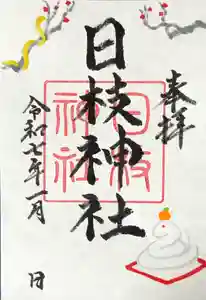 奉拝
日枝神社
日枝神社
令和七年一月 日